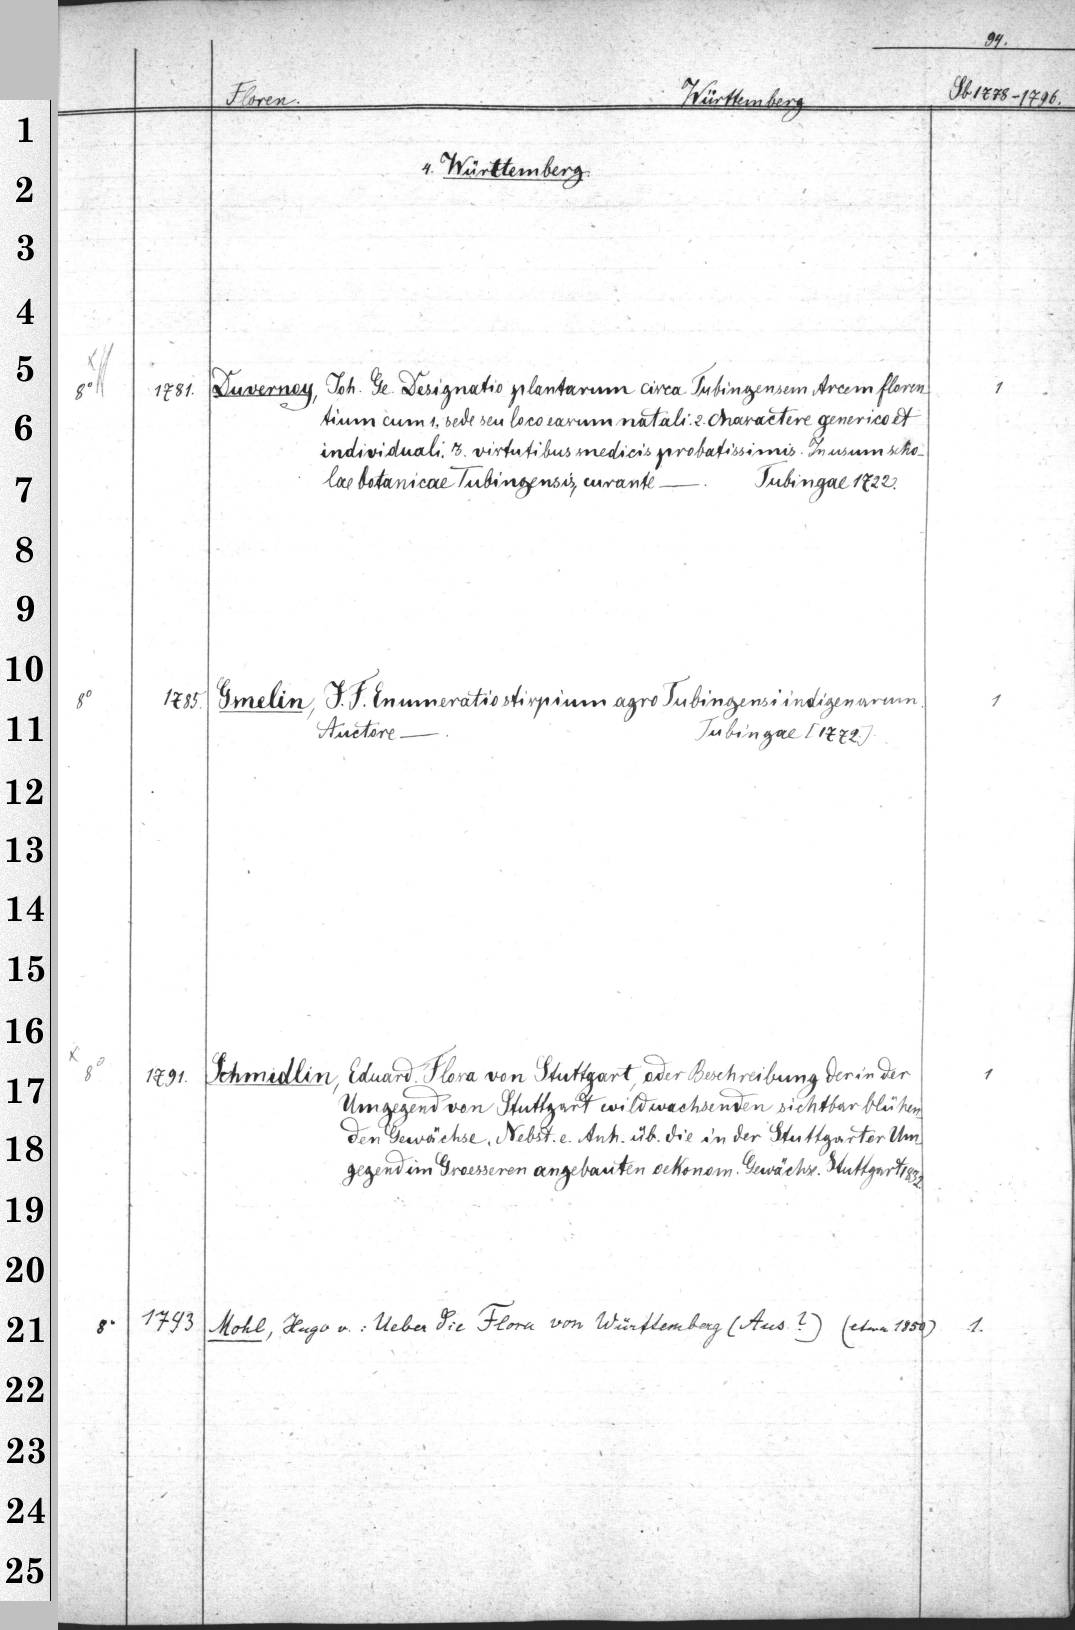 94.
Floren. Württemberg Sb 1778-1796.
1
4. Württemberg.
2
3
4
5
8° 1781. Duvernoy, Joh. Ge. Designatio plantarum circa Tubingensem Arcem floren- 1
6
tium cum 1. sede seu loco earum natali. 2. charactere generico et
individuali. 3. virtutibus medicis probatissimis. In usum scho-
7
lae botanicae Tubingensis, curante —. Tubingae 1722.
8
9
10
8° 1785. Gmelin, J. F. Enumeratio stirpium agro Tubingensi indigenarum. 1
11
Auctore —. Tubingae [1772.]
12
13
14
15
16
x 8° 1791. Schmidlin, Eduard. Flora von Stuttgart, oder Beschreibung der in der 1
17
Umgegend von Stuttgart wildwachsenden sichtbar blühen-
18
den Gewächse. Nebst. e. Anh. üb. die in der Stuttgarter Um-
gegend im Groesseren angebauten oekonom. Gewächse. Stuttgart 1832.
19
20
21
8° 1793 Mohl, Hugo v. : Ueber die Flora von Württemberg (Aus ?) (etwa 1850) 1.
22
23
24
25